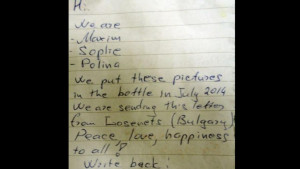 Hi!
We are
- Maxim
- Sophie
- Polina
We put these pictures
in the bottle in July 2014
We are sending this letter
from Losenets (Bulgary)
Peace, love, happiness
to all!
Write back: